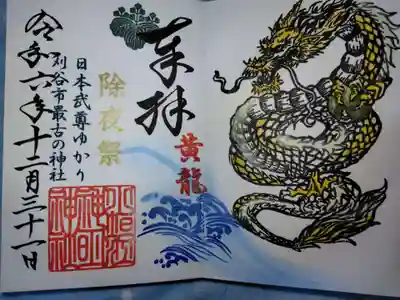 奉拝
黄龍
除夜祭
日本武尊ゆかり
刈谷市最古の神社
小垣江
神明
神社
令和六年十二月三十一日